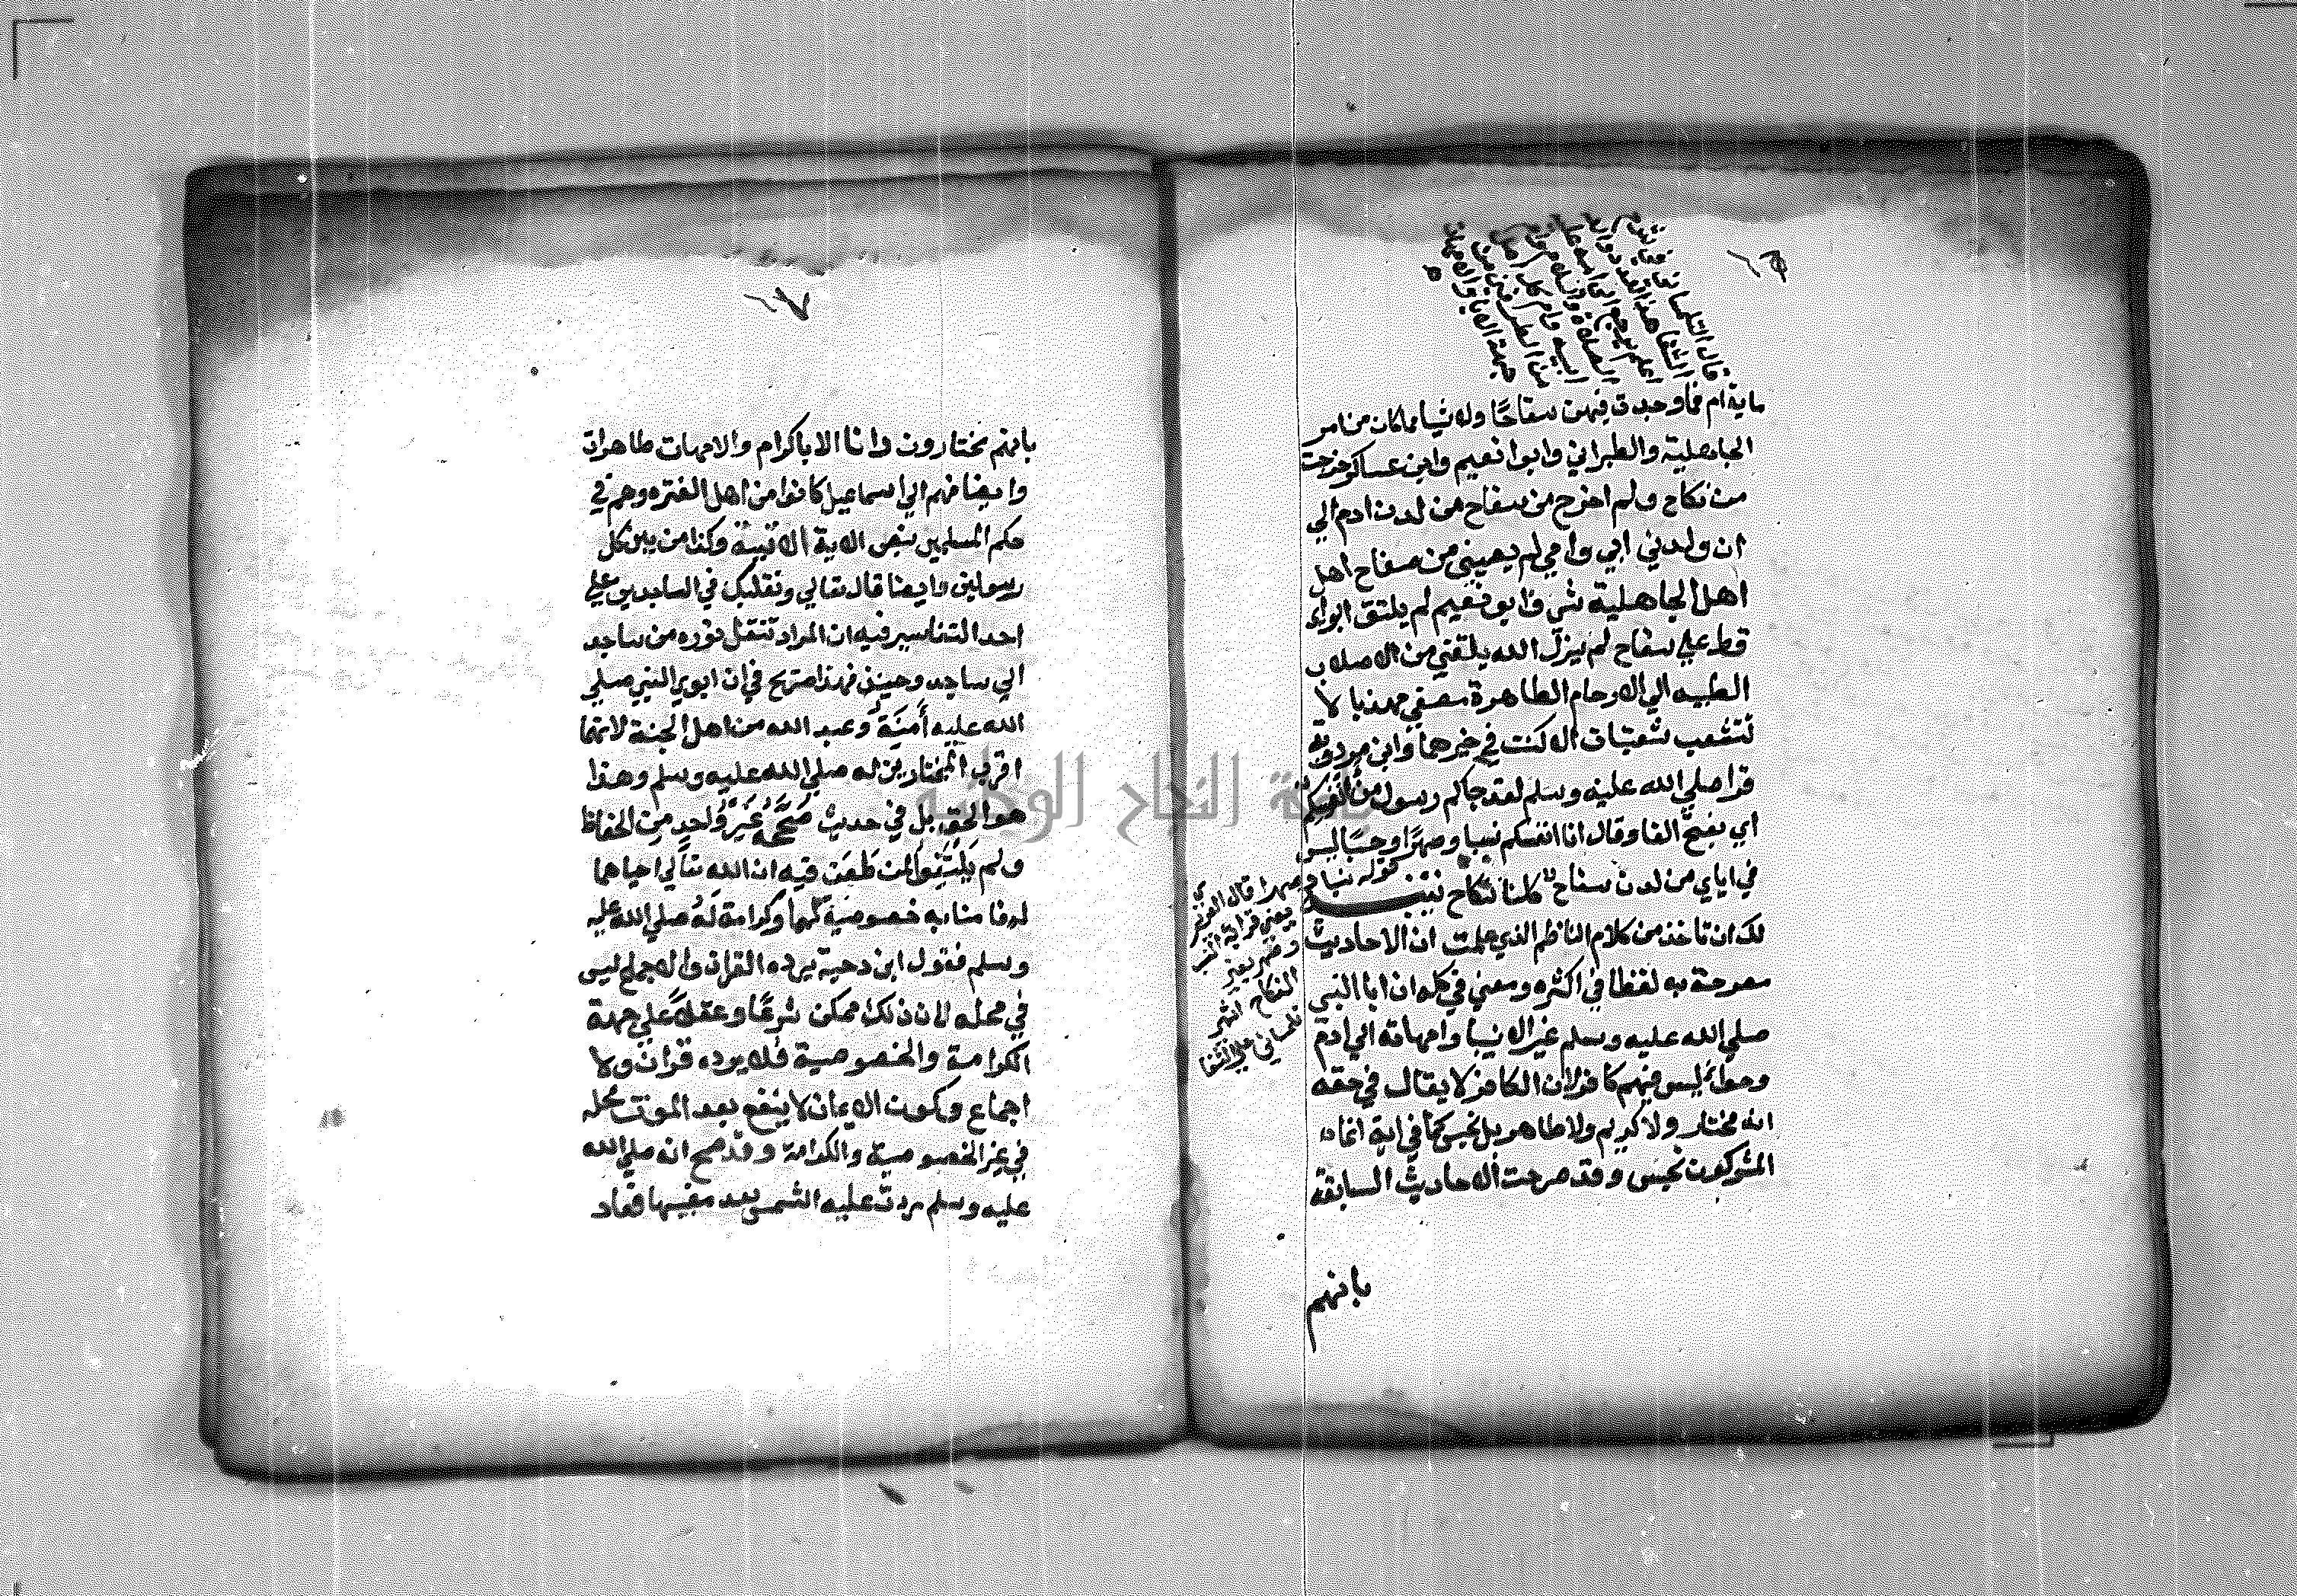 قال التلمسا
ماية ام فما وجدت فيهن سفاحًا ولا شيا مما كان من امر
الجاهلية والطبراني وابوا نعيم وابن عساكر خرجت
من نكاح ولم اخرج من سفاح من لدن ادم الي
ان ولدني ابي وامي لم يصبني من سفاح اهل
اهل الجاهلية شي وابو نعيم لم يلتق ابواي
قط علي سفاح لم يزل الله ينقلني من الاصلاب
الطيبه الي الارحام الطاهرة مصفي مهذبا لا
تتشعب شعبتان الا كنت في خيرهما وابن مردويه
قرا صلي الله عليه وسلم لقد جاكم رسول من انفسكم
اي بفتح الفا وقال انا انفسكم نسبا وصهرًا وحسبًا ليس
في اباي من لدن سفاح كلنا نكاح تنبيه
لك ان تاخذ من كلام الناظم الذي علمت ان الاحاديث
مصرحة به لفظا في اكثره ومعني في كله ان ابا النبي
صلي الله عليه وسلم غير الانبيا وامهاته الي ادم
وحواء ليس فيهم كافر لان الكافر لا يقال في حقه
انه مختار ولا كريم ولا طاهر بل نجس كما في اية انما
المشركون نجس وقد صرحت الاحاديث السابقة
قوله نسبا وصهرا قال العزيزي
يعني قرابة النسب
وصهر يعني
النكاح انتهي
تلمساني علي الشفا
بانهم
بانهم مختارون وانا الابا كرام والامهات طاهرات
وايضا فهم الي اسماعيل كانوا من اهل الفتره وهم في
حكم المسلمين بنص الاية الاتية وكذا من بين كل
رسولين وايضا قال تعالي وتقلبك في الساجدين علي
احد التفاسير فيه ان المراد تنقل نوره من ساجد
الي ساجد وحينئذ فهذا صريح في ان ابوي النبي صلي
الله عليه أمنَةَ وعبد الله من اهل الجنة لانهما
اقرب المختارين له صلي الله عليه وسلم وهذا
هو الحق بل في حديث صَحَّحَهُ غَيْرُ وَاحِدٍ من الحفاظ
ولم يَلْتَفِتُوا لمن طَعَنَ فيه ان الله تعالي احياهما
له فامنا به خصوصية لهما وكرامة لَهُ صلي الله عليه
وسلم فقول ابن دحية يرده القران والاجماع ليس
في محله لان ذلك ممكن شرعًا وعقلًا علي جهة
الكرامة والخصوصية فلا يرده قران ولا
اجماع وكون الايمان لا ينفع بعد الموت محله
في غير الخصوصية والكرامة وقد صح انه صلي الله
عليه وسلم ردت عليه الشمس بعد مغيبها فعاد
جامعة النجاح الوطنية